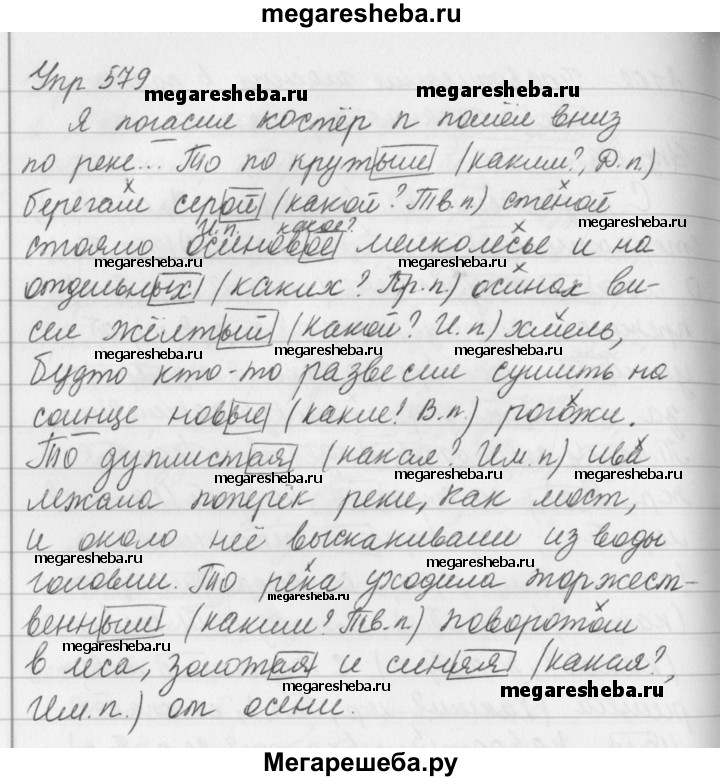 megaresheba.ru
Упр 579
megaresheba.ru
megaresheba.ru
Я погасил костёр и пошёл вниз
по реке... То по крутым (каким?, Д.п.)
megaresheba.ru
megaresheba.ru
берегам серой (какой? Тв.п) стеной
И.п. какое?
стояло осиновое мелколесье и на
megaresheba.ru
megaresheba.ru
megaresheba.ru
отдельных (каких? Пр.п) осинах ви-
сел жёлтый (какой? И.п) хмель,
megaresheba.ru
megaresheba.ru
будто кто-то развесил сушить на
солнце новые (какие? В.п.) рогожи.
megaresheba.ru
То дуплистая (какая? Им.п) ива
megaresheba.ru
megaresheba.ru
megaresheba.ru
лежала поперёк реки, как мост,
и около неё выскакивали из воды
megaresheba.ru
megaresheba.ru
головли. То река уходила торжест-
megaresheba.ru
венным (каким? Тв.п) поворотом
megaresheba.ru
megaresheba.ru
в леса, золотая и синяя (какая?,
megaresheba.ru
megaresheba.ru
Им.п.) от осени.
Мегарешеба.ру